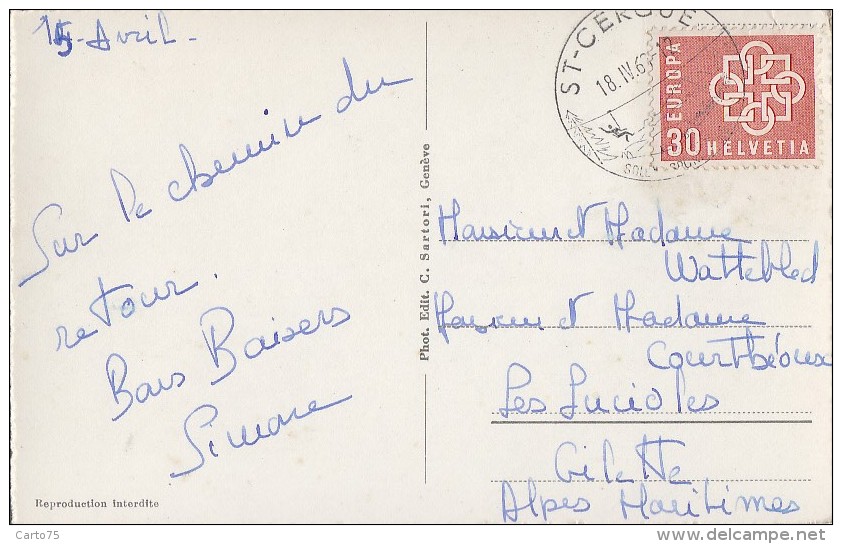 15 Avril.
Sur le chemin du
retour.
Bons Baisers
Simone
Reproduction interdite
Phot. Edit. C. Sartori, Genève
ST-CERGUE
18. IV. 6
EUROPA
30 HELVETIA
Monsieur et Madame
Wattebled
Monsieur et Madame
Courthéoux
Les Lucioles
Gilette
Alpes Maritimes
Carto75
www.delcampe.net